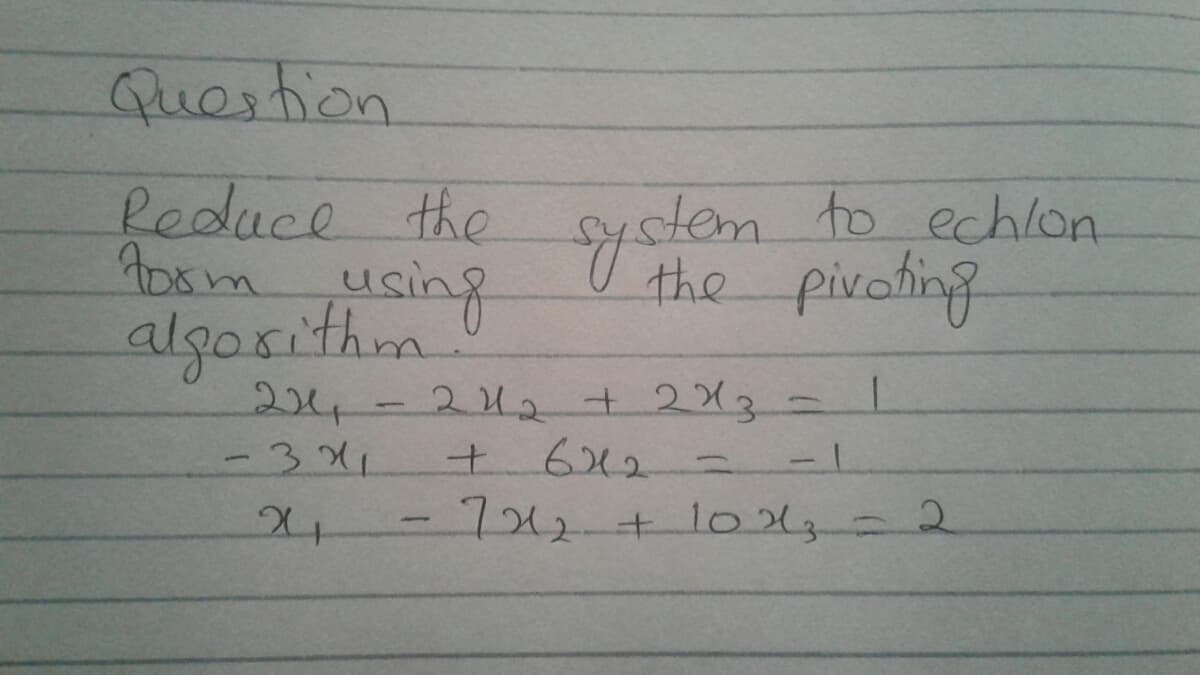 Question
Reduce the system to echlon
form using the pivoting
algorithm.
2x₁ - 2x₂ + 2x₃ = 1
-3x₁ + 6x₂ = -1
x₁ - 7x₂ + 10x₃ = 2